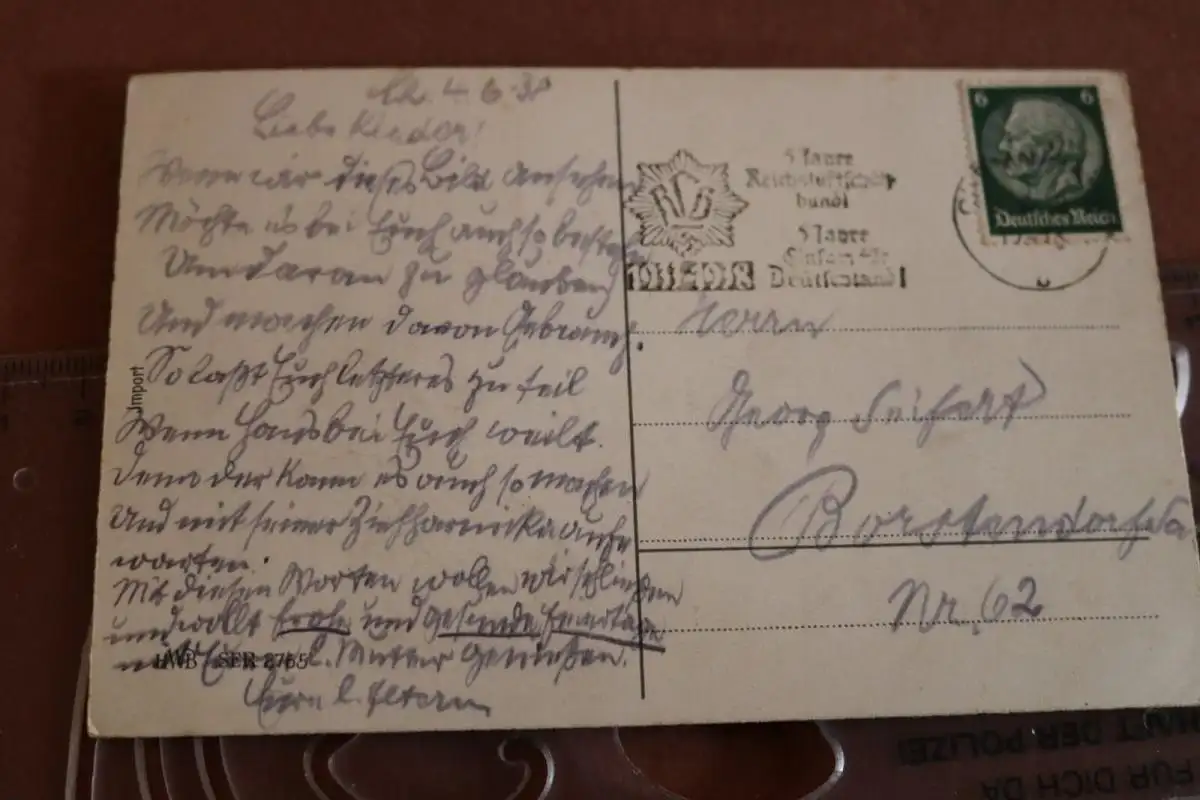 4.6.38
Liebe Kinder!
Wenn wir dieses Bild ansehen
Möchte es bei Euch auch so bestehn
Um daran zu glauben
Und machen davon Gebrauch.
So laßt Euch letzteres zu teil
Wenn Hans bei Euch weilt.
Denn der kann es auch so machen
Und mit seiner Ziehharmonika aufwarten.
Mit diesen Worten wollen wir schließen
und wollt frohe und gesunde Feiertage
mit Eurer l. Mutter genießen.
Eure l. Eltern
Import
HWB SER 8765
5 Jahre
Reichsluftschutz
bund
RLB
5 Jahre
Einsatz für
Deutschland
1933-1938
6 6
Deutsches Reich
Herrn
Georg Seifert
Borstendorf
Nr. 62
FÜR DICH DA
DER POLIZEI